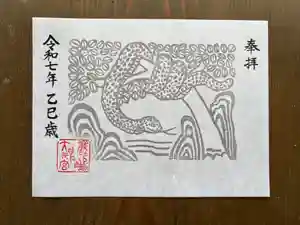 奉拝
令和七年 乙巳歳